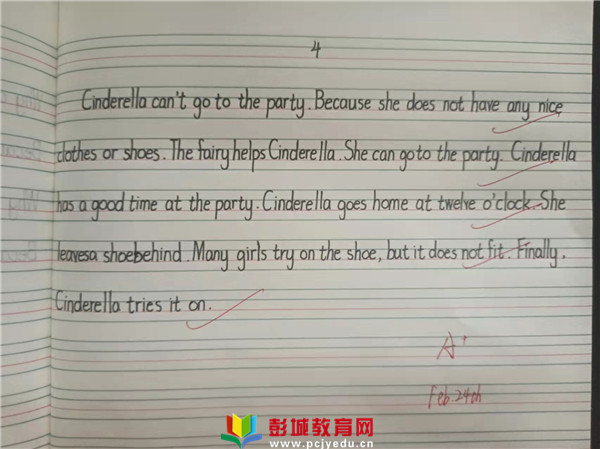 4
Cinderella can't go to the party. Because she does not have any nice
clothes or shoes. The fairy helps Cinderella. She can goto the party. Cinderella
has a good time at the party. Cinderella goes home at twelve o'clock. She
leavesa shoebehind. Many girls try on the shoe, but it does not fit. Finally.
Cinderella tries it on.
A
Feb. 24th
彭城教育网
www.pcjyedu.cn